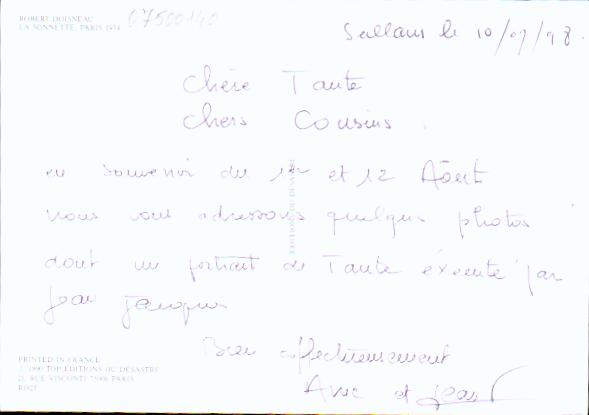 ROBERT DOISNEAU
LA SONNETTE, PARIS 1934
67500140
Seillans le 10/09/98.
Chère Tante
Chers Cousins
en souvenir du 1er et 12 Août
nous vous adressons quelques photos
dont un portrait de Tante éxecuté par
Jean Jacques
Bien affectueusement
et Jean
EDITIONS DU DESASTRE
PRINTED IN FRANCE
© 1990 TOP EDITIONS DU DESASTRE
21, RUE VISCONTI 75006 PARIS